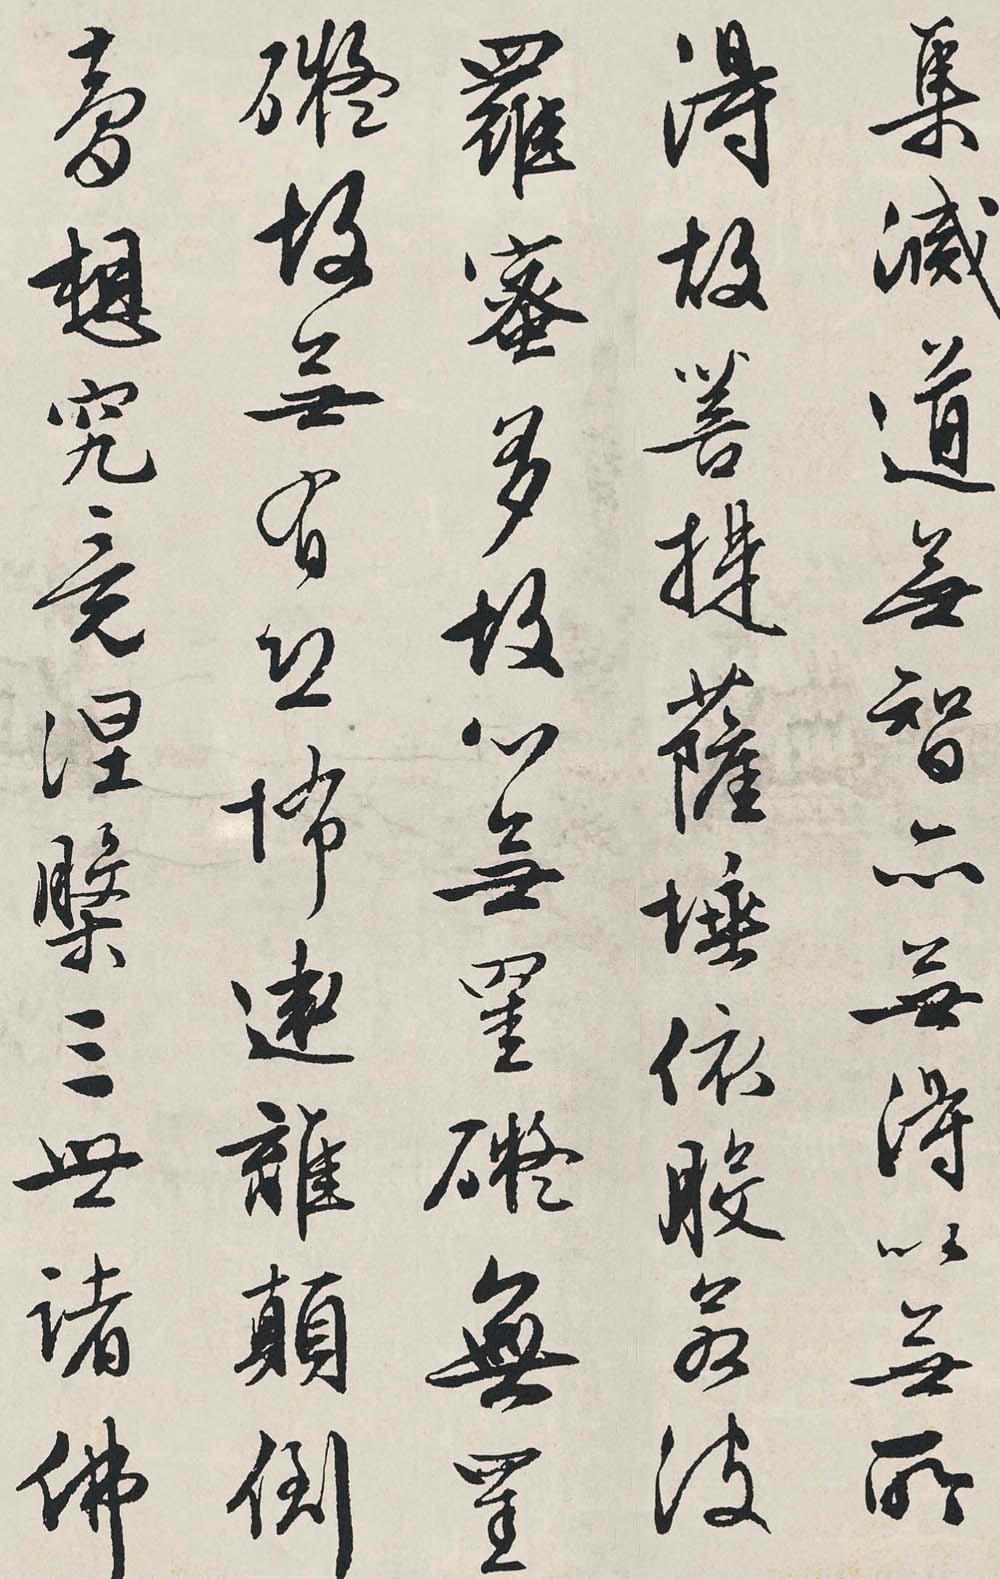 集滅道無智亦無得以無所
得故菩提薩埵依般若波
羅蜜多故心無罣礙無罣
礙故無有恐怖遠離顛倒
夢想究竟涅槃三世諸佛